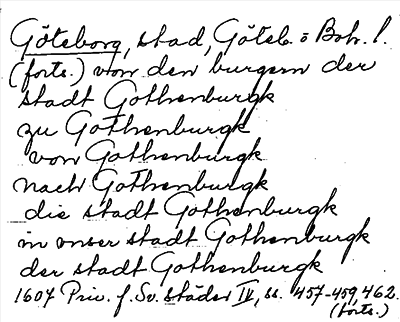 Göteborg, stad, Göteb. o Boh. l.
(forts.) von den burgern der
stadt Gothenburgk
zu Gothenburgk
von Gothenburgk
nach Gothenburgk
die stadt Gothenburgk
in unser stadt Gothenburgk
der stadt Gothenburgk
1607 Priv. f. Sv. städer IV, ss. 457-459, 462.
(forts.)